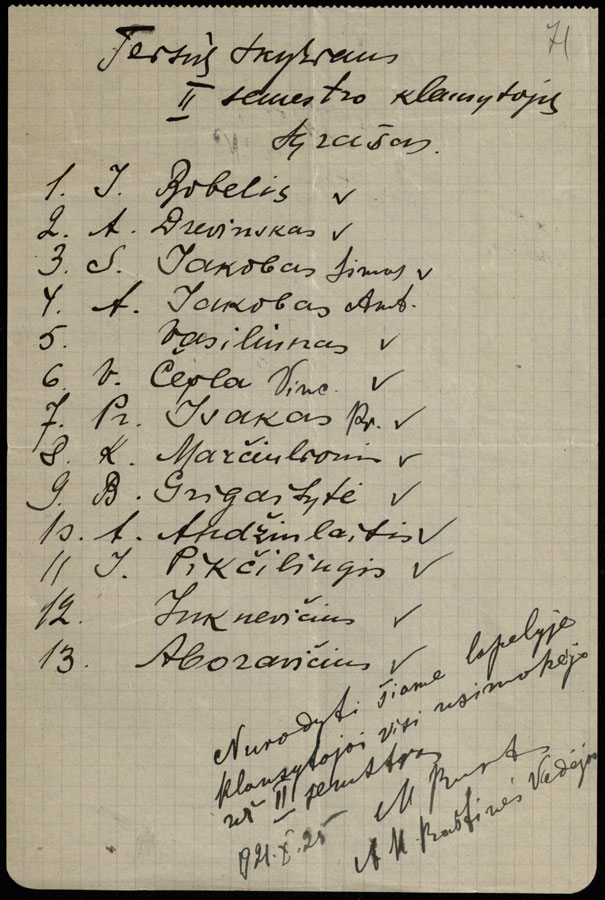 71
Teisių skyriaus
II semestro klausytojų
sąrašas.
1. J. Bobelis ✓
2. A. Drevinskas ✓
3. S. Jakobas Simas ✓
4. A. Jakobas Ant.
5. Vasiliunas ✓
6. V. Čepla Vinc. ✓
7. Pr. Isakas Pr. ✓
8. K. Marčiulionis ✓
9. B. Grigaitytė ✓
10. A. Andžiulaitis ✓
11 J. Pikčilingis ✓
12. Juknevičius ✓
13. Aboravičius ✓
Nurodyti šiame lapelyje
klausytojai visi užsimokėjo
už II semestrą
M
A. K. Raštinės Vedėjas
1921.X.25